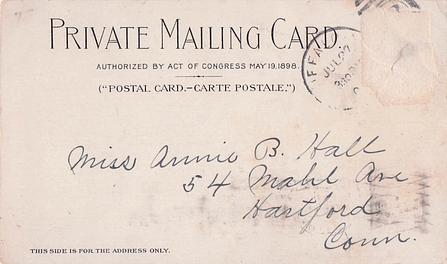 PRIVATE MAILING CARD.
AUTHORIZED BY ACT OF CONGRESS MAY 19, 1898.
("POSTAL CARD.—CARTE POSTALE.")
JUL 27
Miss Annie B. Hall
54 Mahl Ave
Hartford
Conn.
THIS SIDE IS FOR THE ADDRESS ONLY.